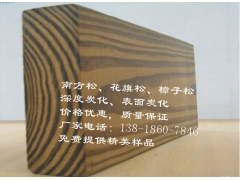 南方松、花旗松、樟子松
深度炭化、表面炭化
价格优惠，质量保证
厂家电话：138-1860-7846
免费提供精美样品